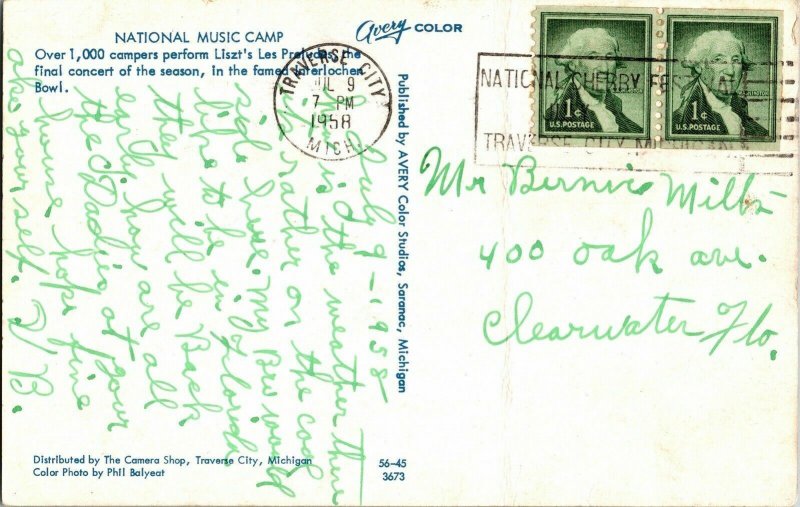 NATIONAL MUSIC CAMP
Over 1,000 campers perform Liszt's Les Preludes, the
final concert of the season, in the famed Interlochen
Bowl.
Avery COLOR
TRAVERSE CITY
JUL 9
7 PM
1958
MICH.
NATIONAL CHERRY FESTIVAL
TRAVERSE CITY MICHIGAN
1¢
U.S. POSTAGE
WASHINGTON
1¢
U.S. POSTAGE
WASHINGTON
July 9-1958
is the weather there
rather on the cool
side here. My Bro would
like to be in Florida
they will be Back
early how are all
the Dadios at your
house, hope fine
your self. B
Mr Bernie Mills
400 oak ave.
Clearwater Flo.
Published by AVERY Color Studios, Saranac, Michigan
Distributed by The Camera Shop, Traverse City, Michigan
Color Photo by Phil Balyeat
56-45
3673